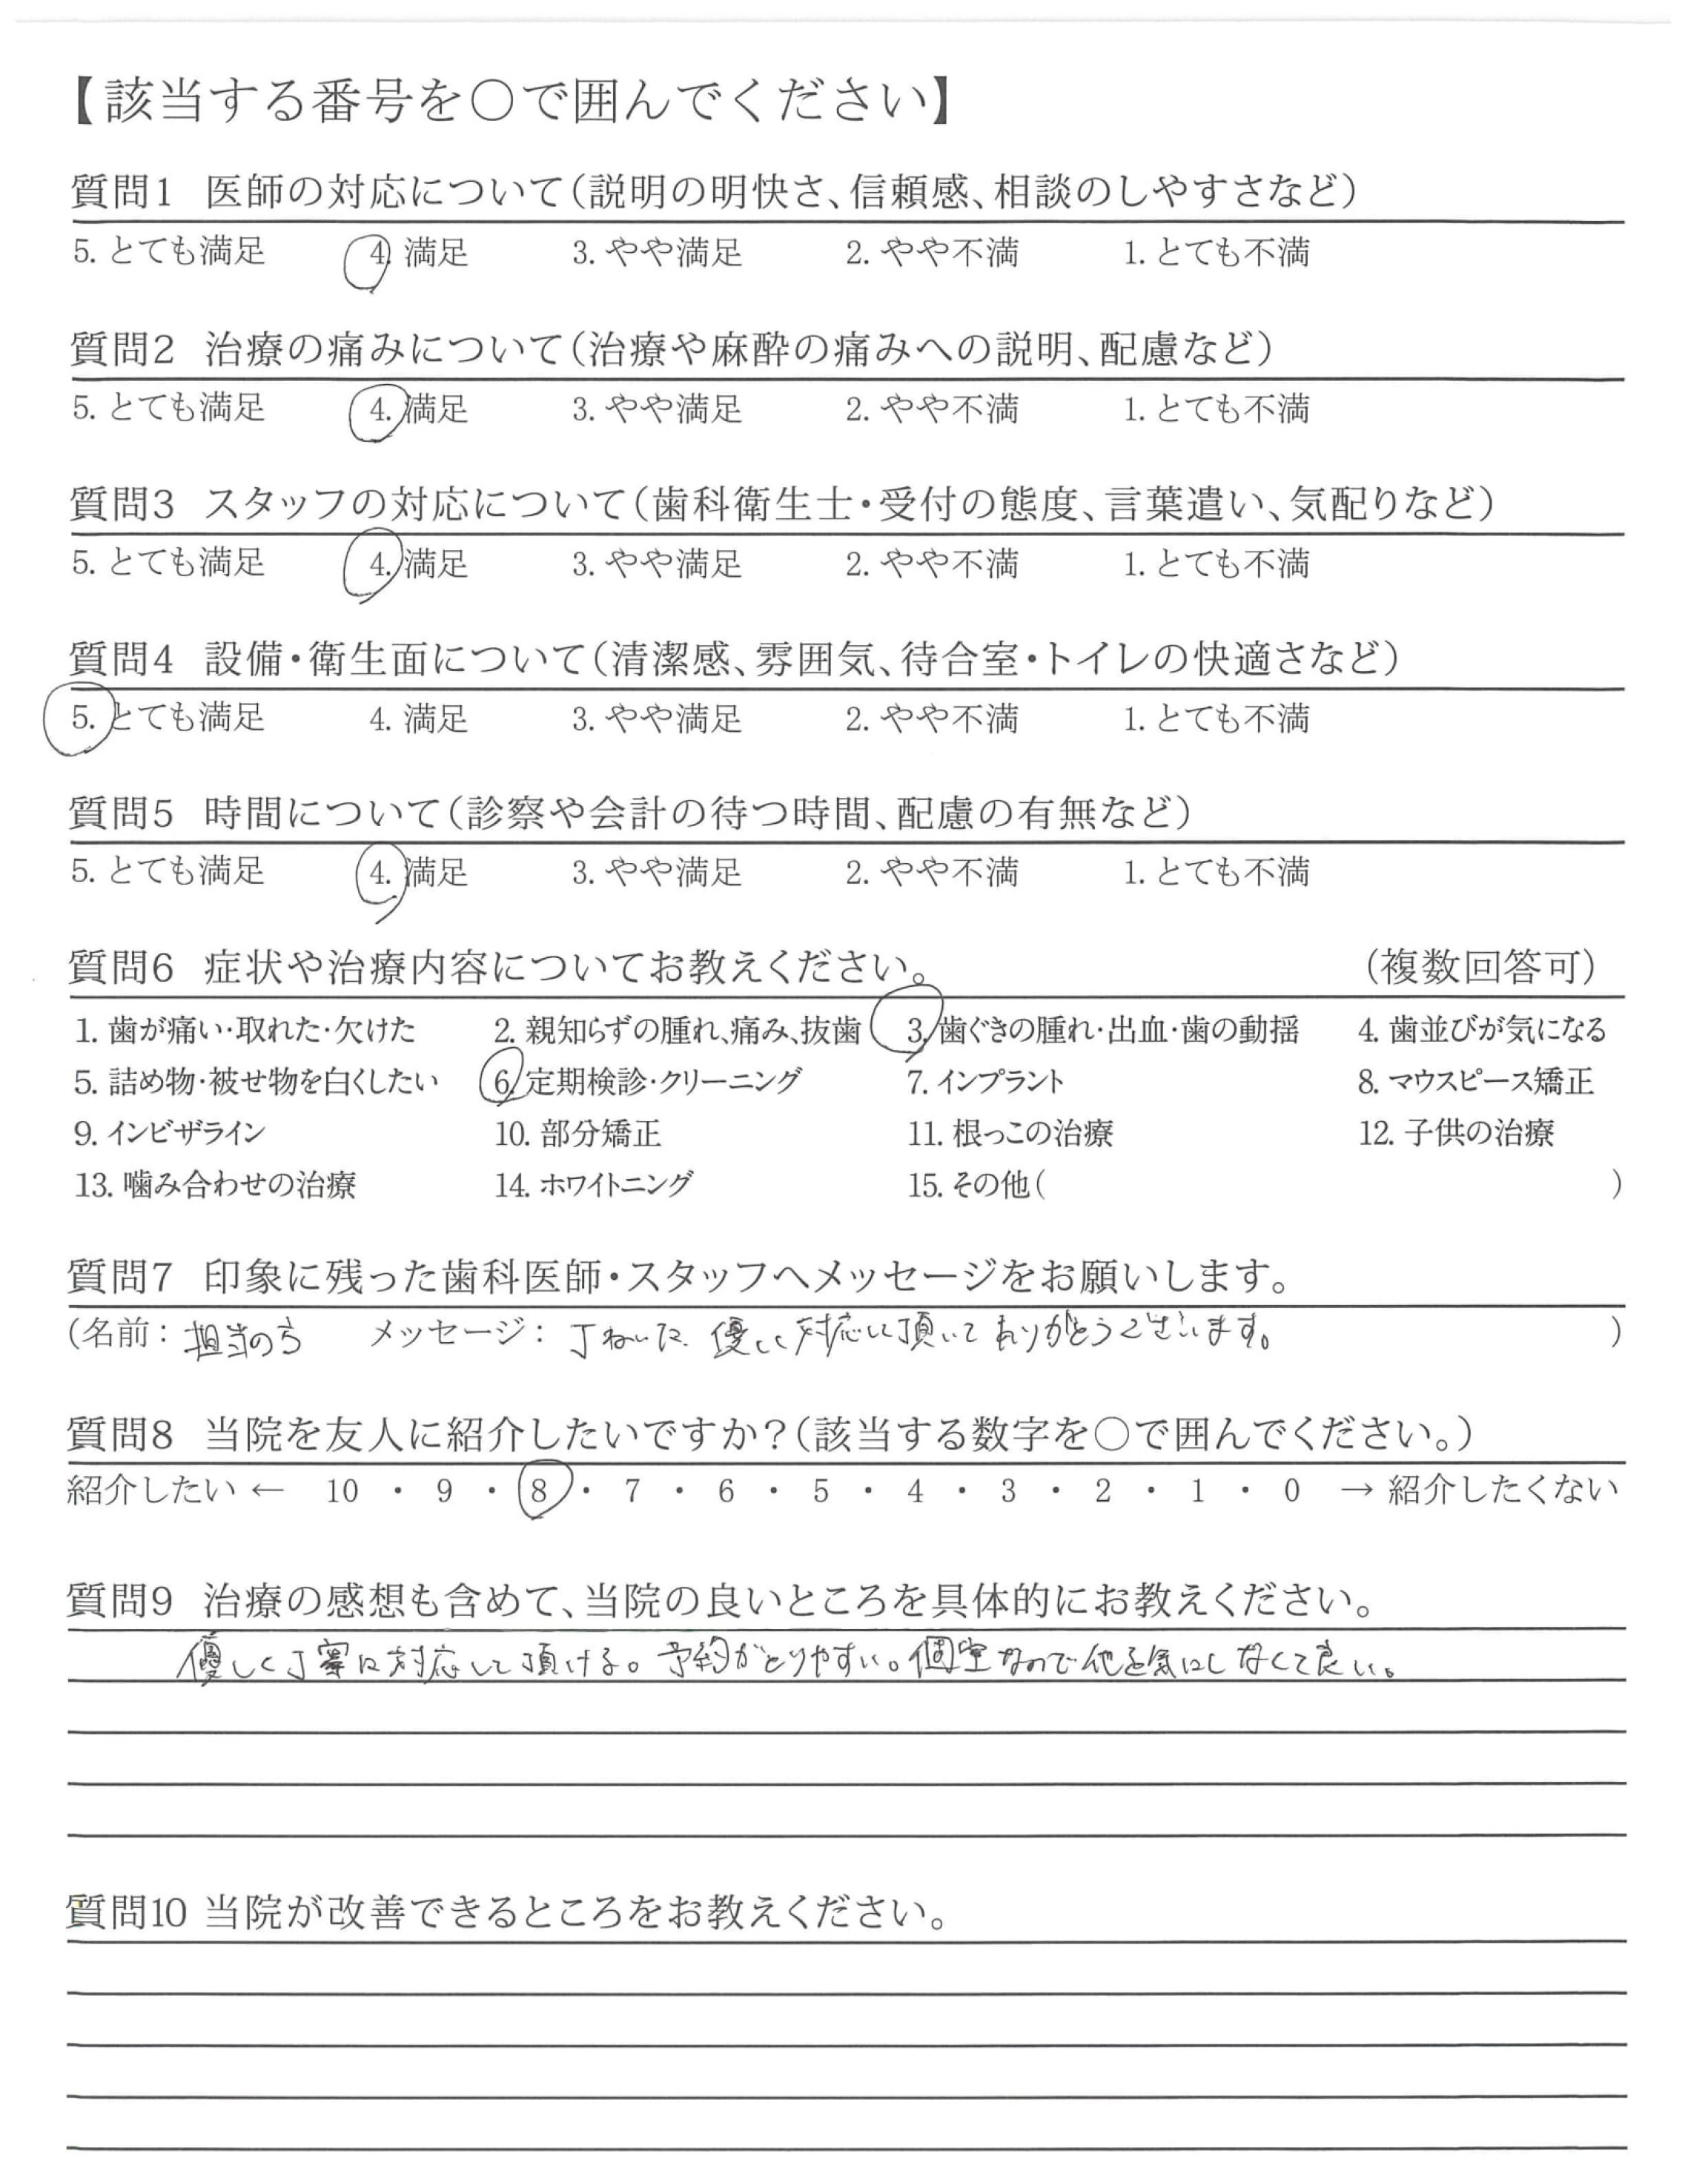 【該当する番号を○で囲んでください】
質問1 医師の対応について(説明の明快さ、信頼感、相談のしやすさなど)
5. とても満足 4. 満足 3. やや満足 2. やや不満 1. とても不満
質問2 治療の痛みについて(治療や麻酔の痛みへの説明、配慮など)
5. とても満足 4. 満足 3. やや満足 2. やや不満 1. とても不満
質問3 スタッフの対応について(歯科衛生士・受付の態度、言葉遣い、気配りなど)
5. とても満足 4. 満足 3. やや満足 2. やや不満 1. とても不満
質問4 設備・衛生面について(清潔感、雰囲気、待合室・トイレの快適さなど)
5. とても満足 4. 満足 3. やや満足 2. やや不満 1. とても不満
質問5 時間について(診察や会計の待つ時間、配慮の有無など)
5. とても満足 4. 満足 3. やや満足 2. やや不満 1. とても不満
質問6 症状や治療内容についてお教えください。 (複数回答可)
1. 歯が痛い・取れた・欠けた 2. 親知らずの腫れ、痛み、抜歯 3. 歯ぐきの腫れ・出血・歯の動揺 4. 歯並びが気になる
5. 詰め物・被せ物を白くしたい 6. 定期検診・クリーニング 7. インプラント 8. マウスピース矯正
9. インビザライン 10. 部分矯正 11. 根っこの治療 12. 子供の治療
13. 噛み合わせの治療 14. ホワイトニング 15. その他( )
質問7 印象に残った歯科医師・スタッフへメッセージをお願いします。
(名前： 担当の方 メッセージ： 丁ねいに 優しく対応して頂いてありがとうございます。 )
質問8 当院を友人に紹介したいですか？(該当する数字を○で囲んでください。)
紹介したい ← 10 ・ 9 ・ 8 ・ 7 ・ 6 ・ 5 ・ 4 ・ 3 ・ 2 ・ 1 ・ 0 → 紹介したくない
質問9 治療の感想も含めて、当院の良いところを具体的にお教えください。
優しく丁寧に対応して頂ける。予約がとりやすい。個室なので他を気にしなくて良い。
質問10 当院が改善できるところをお教えください。